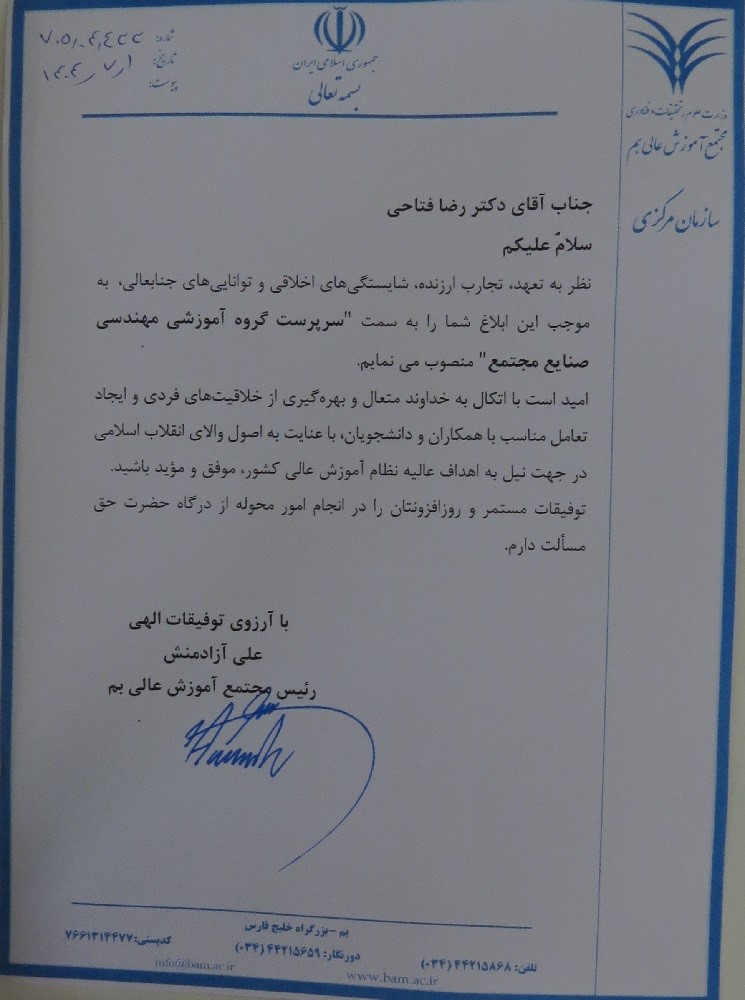 جمهوری اسلامی ایران
بسمه تعالی
شماره:
تاریخ: ۱۴۰۴/۷/۱
پیوست:
وزارت علوم، تحقیقات و فناوری
مجتمع آموزش عالی بم
سازمان مرکزی
جناب آقای دکتر رضا فتاحی
سلامٌ علیکم
نظر به تعهد، تجارب ارزنده، شایستگی‌های اخلاقی و توانایی‌های جنابعالی، به
موجب این ابلاغ شما را به سمت "سرپرست گروه آموزشی مهندسی
صنایع مجتمع" منصوب می نمایم.
امید است با اتکال به خداوند متعال و بهره‌گیری از خلاقیت‌های فردی و ایجاد
تعامل مناسب با همکاران و دانشجویان، با عنایت به اصول والای انقلاب اسلامی
در جهت نیل به اهداف عالیه نظام آموزش عالی کشور، موفق و مؤید باشید.
توفیقات مستمر و روزافزونتان را در انجام امور محوله از درگاه حضرت حق
مسألت دارم.
با آرزوی توفیقات الهی
علی آزادمنش
رئیس مجتمع آموزش عالی بم
بم -بزرگراه خلیج فارس
تلفن: ۴۴۲۱۵۸۶۸ (۰۳۴)
دورنگار: ۴۴۲۱۵۶۵۹ (۰۳۴)
کدپستی: ۷۶۶۱۳۱۴۴۷۷
www.bam.ac.ir
info@bam.ac.ir